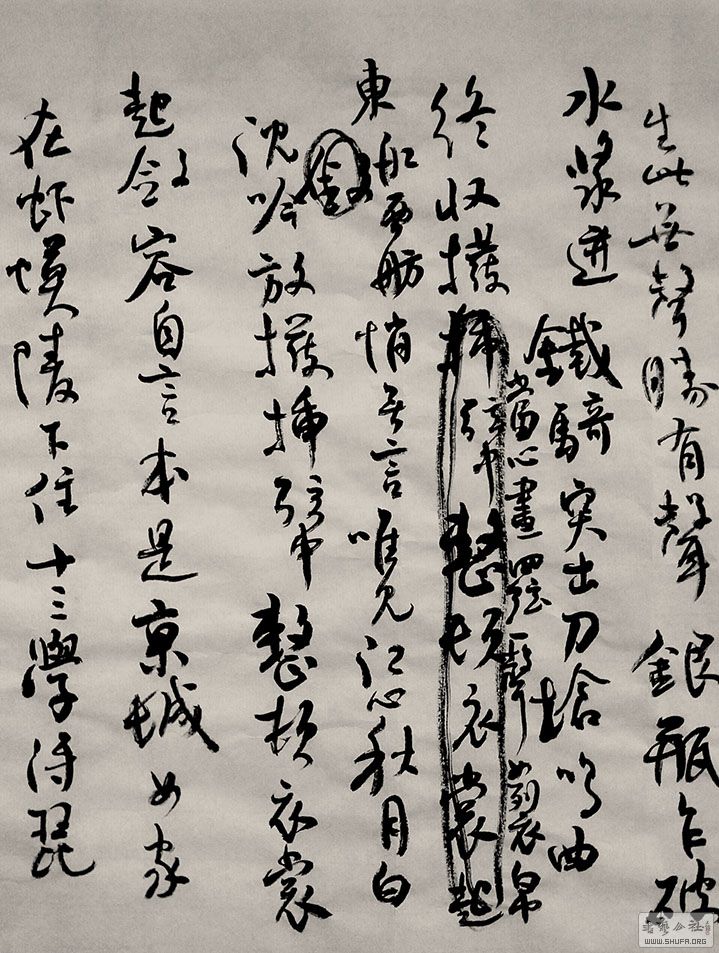 生此無聲勝有聲銀瓶乍破
水漿迸鐵騎突出刀槍鳴曲
當心畫四弦一聲如裂帛
終收撥插弦中整頓衣裳起
東舡西舫悄無言唯見江心秋月白
斂
沈吟放撥插弦中整頓衣裳
起斂容自言本是京城女家
在虾蟆陵下住十三學得琵
WWW.SHUFA.ORG